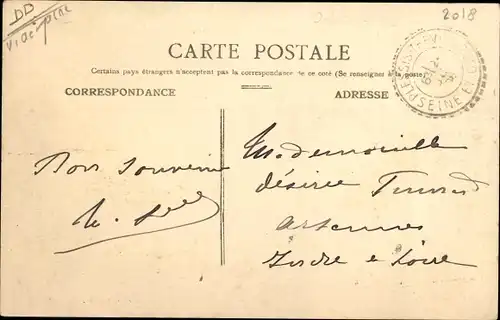 DD
2018
CARTE POSTALE
Certains pays étrangers n'acceptent pas la correspondance de ce coté (Se renseigner à la poste)
CORRESPONDANCE
ADRESSE
SEINE ET
Bon Souvenir
Mademoiselle
désirée
Artennes
Indre e Loire